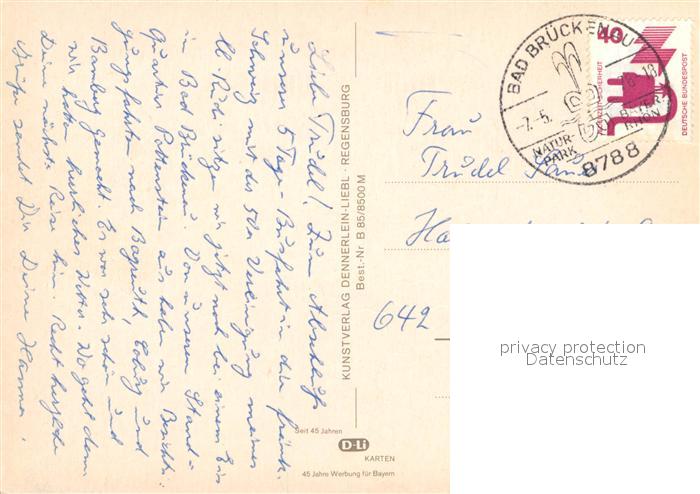 Liebe Trudel! Zum Abschluß
unserer 5 Tage-Busfahrt in die fränk.
Schweiz mit der 50er Vereinigung meines
sitzen wir jetzt noch bei einem Eis
in Bad Brückenau. Von unserem Stand-
Quartier Pottenstein aus haben wir Besichti-
gungsfahrten nach Bayreuth, Coburg und
Bamberg gemacht. Es war sehr schön und
wir hatten herrliches Wetter. Wo geht denn
Deine nächste Reise hin. Recht herzliche
Grüße sendet Dir Deine Hanne.
KUNSTVERLAG DENNERLEIN-LIEBL · REGENSBURG
Best.-Nr B 85/8500 M
Seit 45 Jahren
D-Li
KARTEN
45 Jahre Werbung für Bayern
BAD BRÜCKENAU
-7.-5.
-18
NATUR-
PARK
RHÖN
8788
40
DEUTSCHE BUNDESPOST
Frau
Trudel
642
privacy protection
Datenschutz